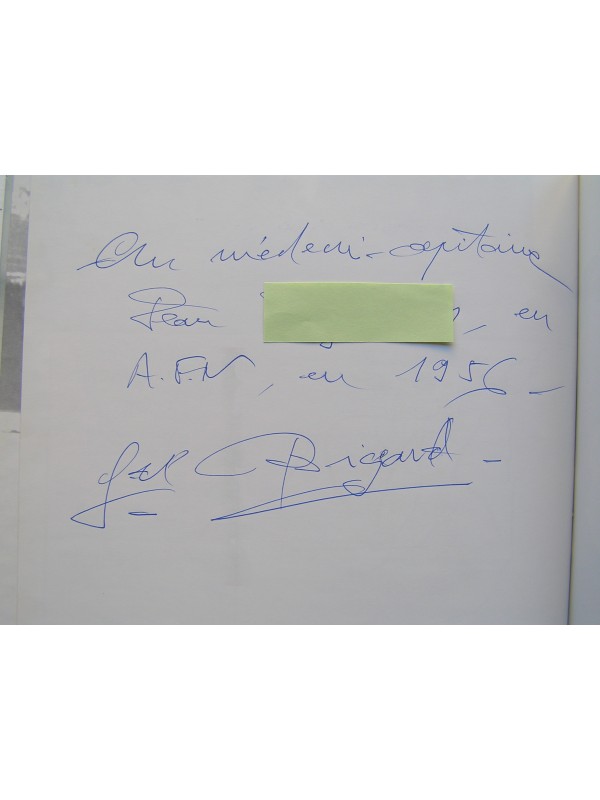 Au médecin-capitaine
Jean , en
A.F.N, en 1956 -
Gal Bigeard -